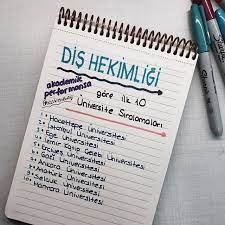 DİŞ HEKİMLİĞİ
akademik
performansa
göre ilk 10
Üniversite Sıralamaları
1• Hacettepe Üniversitesi
2• İstanbul Üniversitesi
3• Ege Üniversitesi
4• İzmir Katip Çelebi Üniversitesi
5• Gazi Üniversitesi
6• Ankara Üniversitesi
7• Atatürk Üniversitesi
8•
9• Selçuk Üniversitesi
10• Marmara Üniversitesi
Sharpie